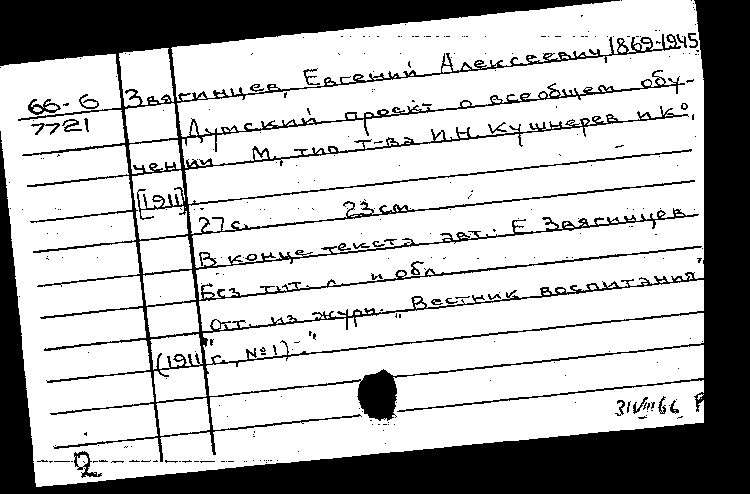 66-6
7721
Звягинцев, Евгений Алексеевич, 1869-1945
Думский проект о всеобщем обу-
чении М., тип Т-ва И.Н. Кушнерев и К°,
[1911].
27 с. 23 см
В конце текста авт.: Е Звягинцев
Без тит. л и обл
Отт. из журн. „Вестник воспитания"
(1911 г., №1)."
31 VIII 66 Р
2